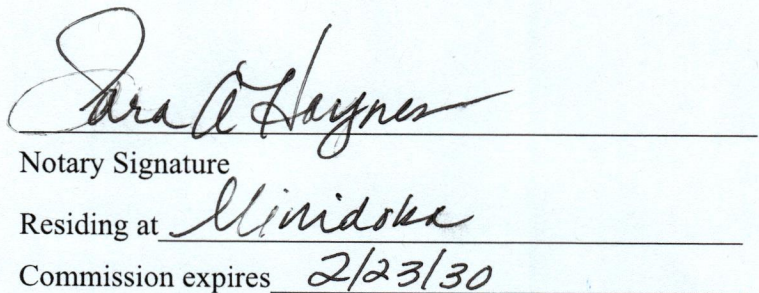 Sara A Haynes
Notary Signature
Residing at Minidoka
Commission expires 2/23/30